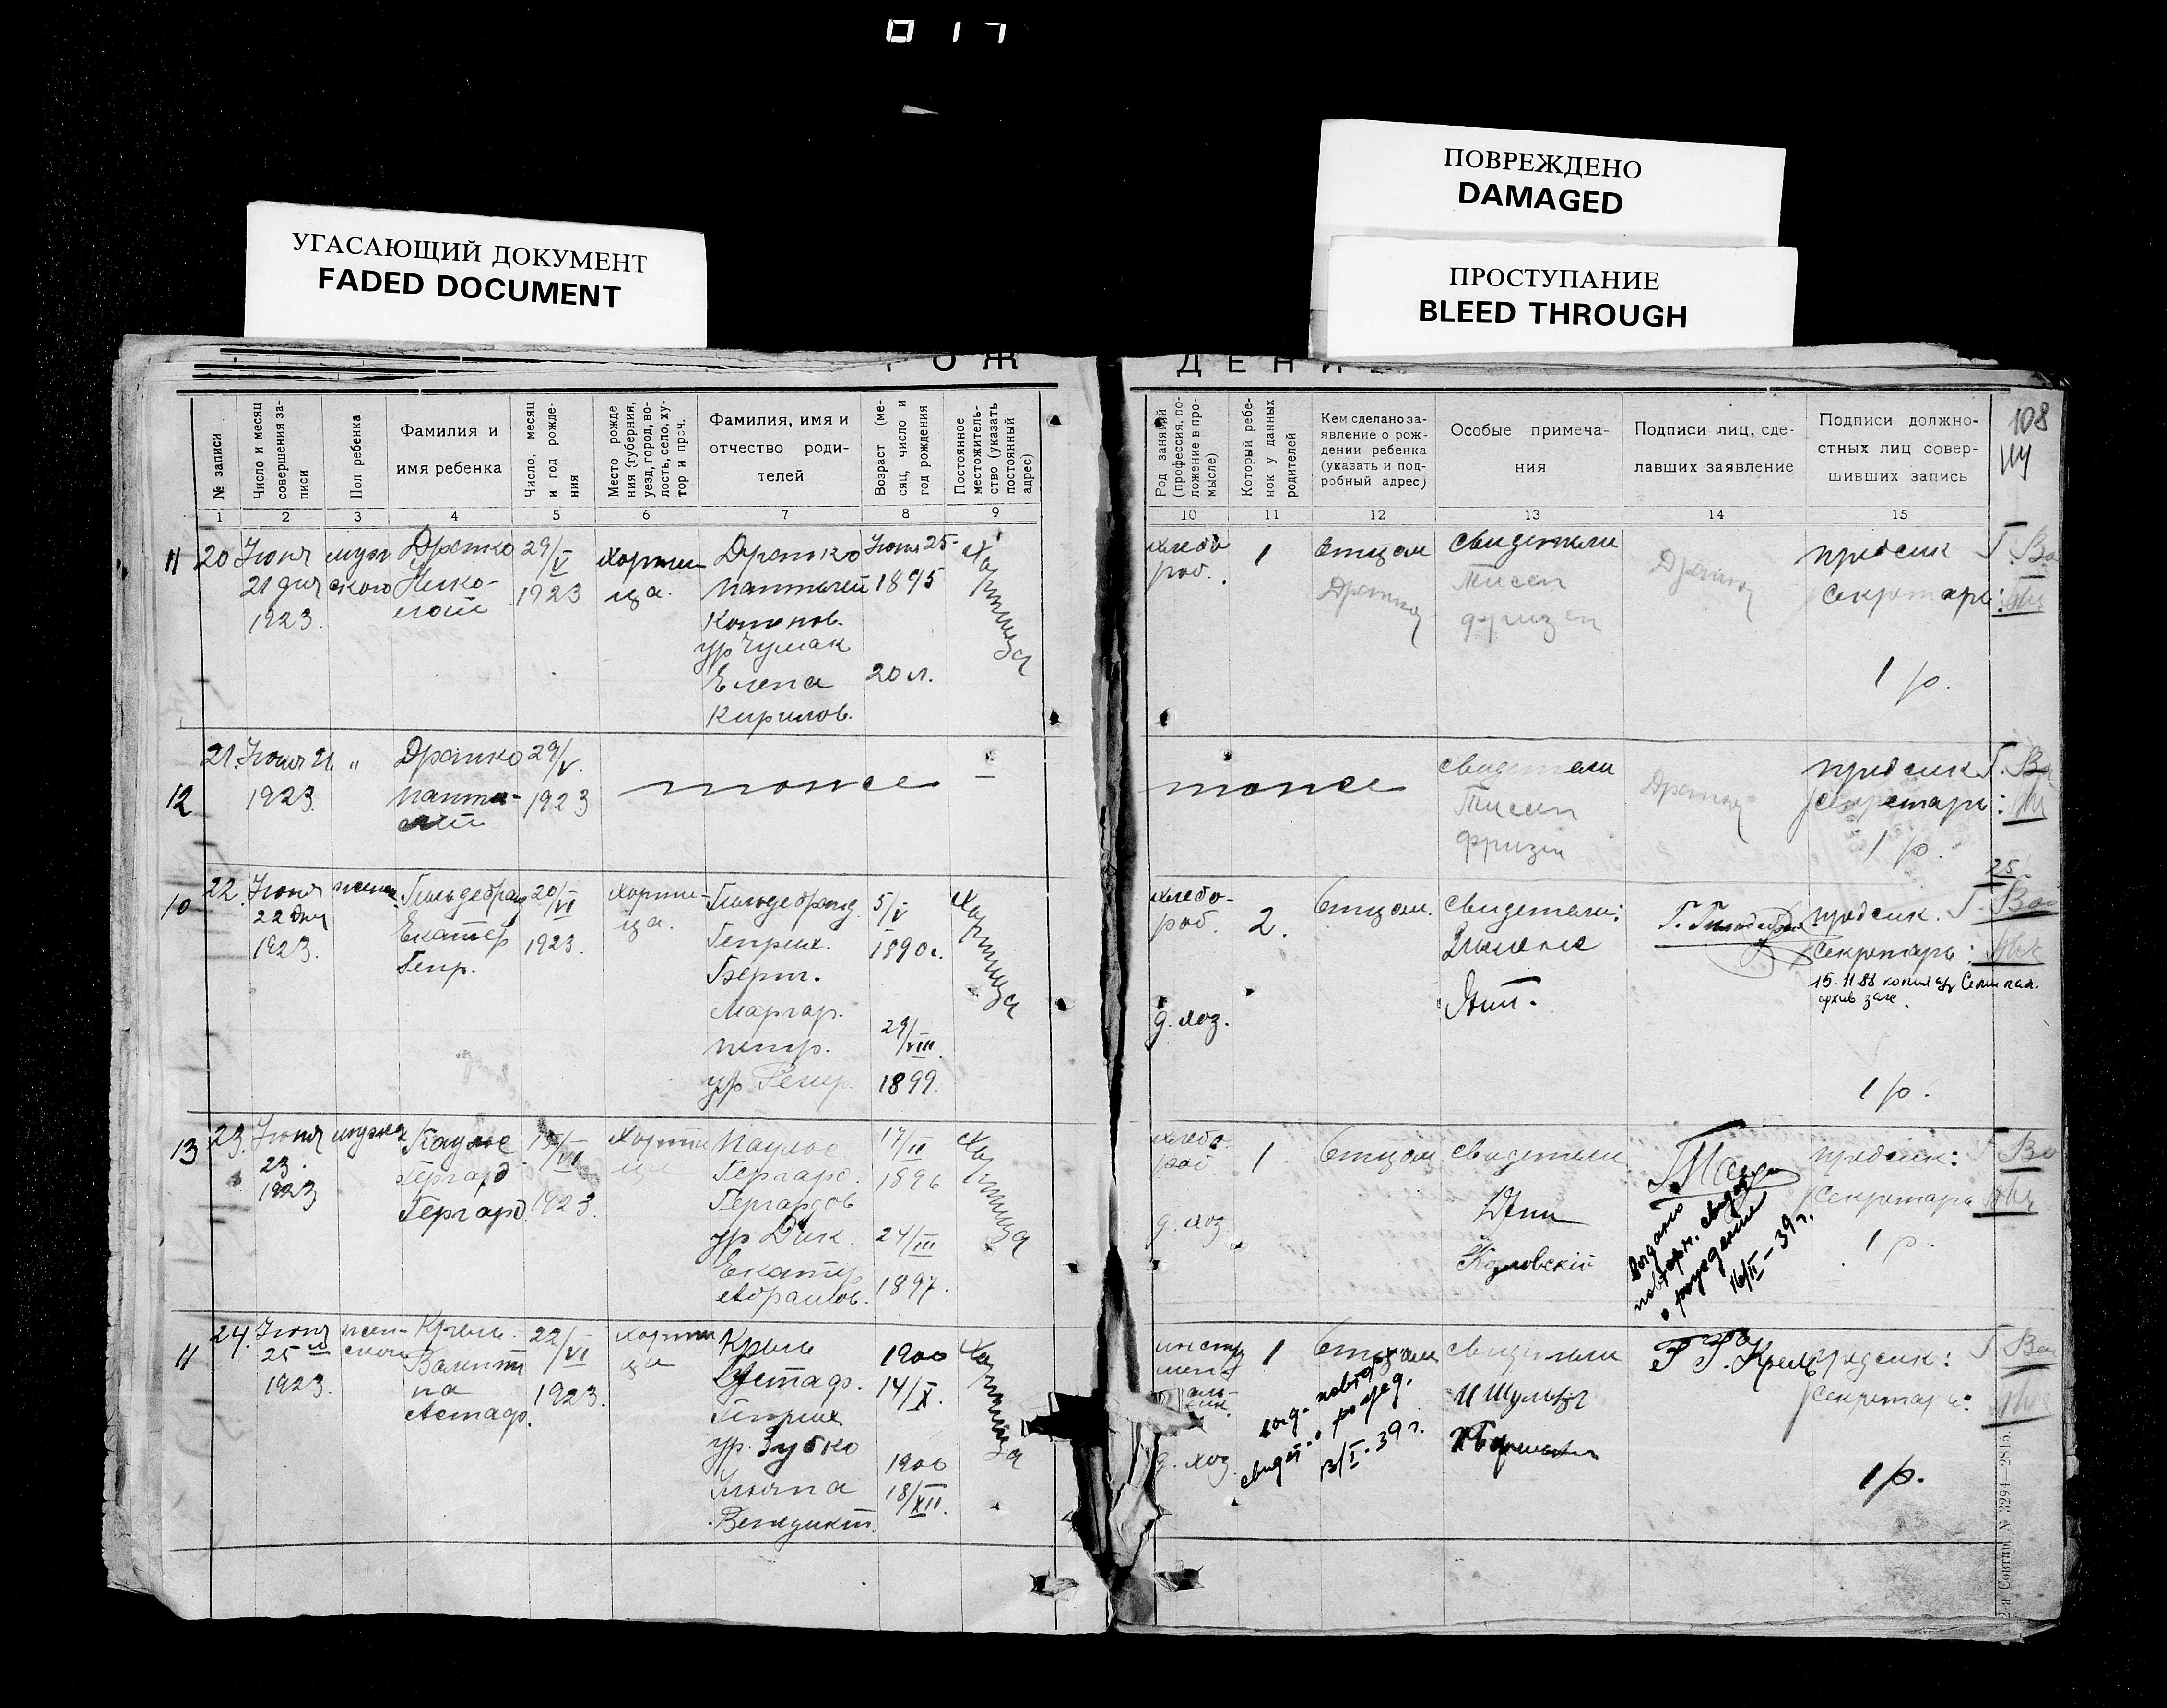 017
ПОВРЕЖДЕНО
DAMAGED
УГАСАЮЩИЙ ДОКУМЕНТ
FADED DOCUMENT
ПРОСТУПАНИЕ
BLEED THROUGH
РОЖ
ДЕНИ
№ записи
Число и месяц
совершения за-
писи
Пол ребенка
Фамилия и
имя ребенка
Число, месяц
и год рожде-
ния
Место рожде
ния (губерния,
уезд, город, во-
лость, село, ху-
тор и проч.
Фамилия, имя и
отчество роди-
телей
Возраст (ме-
сяц, число и
год рождения
Постоянное
местожитель-
ство (указать
постоянный
адрес)
Род занятий
(профессия, по-
ложение в про-
мысле)
Который ребе-
нок у данных
родителей
Кем сделано за-
явление о рож-
дении ребенка
(указать и под-
робный адрес)
Особые примеча-
ния
Подписи лиц, сде-
лавших заявление
Подписи должно-
стных лиц совер-
шивших запись
108
1 2 3 4 5 6 7 8 9
10 11 12 13 14 15
11
20
Июня
21 дня
1923.
муж
ского
Дратко
Нико-
лай
29/V
1923
Хорти-
ца.
Дратко
Пантелей
Кононов.
ур Чумак
Елена
Кирилов.
Июня 25
1895
20 л.
Хортица
хлебо
роб.
1
Отцом
Дратко
свидетели
Тисен
Фризен
предсик
Секретарь:
1 р.
12
21.
Июня 21.
1923.
"
Дратко
Панте-
лей
29/V.
1923
тоже
тоже
свидетели
Тисен
Фризен
предсик
Секретарь:
1 р.
25.
10
22.
Июня
22 дня
1923.
женск.
Гильдебранд
Екатер
Генр.
20/VI
1923.
Хорти-
ца.
Гильдебранд
Генрих.
Берн.
Маргар.
петр.
5/V
1890г.
29/VIII.
1899.
Хортица
хлебо-
роб.
д. хоз.
2.
Отцом.
свидетели:
предсик.
Секретарь:
15.11.88 копия
архив загс.
1 р.
13
23.
Июня
23.
1923
мужск
Паульс
Гергард
Гергард.
1923.
Хорти
ца
Паульс
Гергард.
Гергардов
ур Дик.
Екатер
Абрамов.
17/II
1896
24/III
1897.
Хортица
хлебо
роб
д. хоз
1
Отцом
свидетели
Козловский
выдано
повторн. свидет
о рождение
16/II-39 г.
предсик:
Секретарь
1 р.
11
24.
Июня
25 го
1923.
жен-
ской
Крель.
Валенти
на
Астаф.
22/VI
1923.
Хорти
ца
Крель
Астаф.
Генрих.
ур. Зубко
Ульяна
Венедикт.
1900
14/X.
1900
18/XII.
Хортица
д. хоз
1
Отцом
выд. повтор.
свидет. о рожд.
13/I.39 г.
свидетели
Крель
предсик:
Секретарь:
1 р.